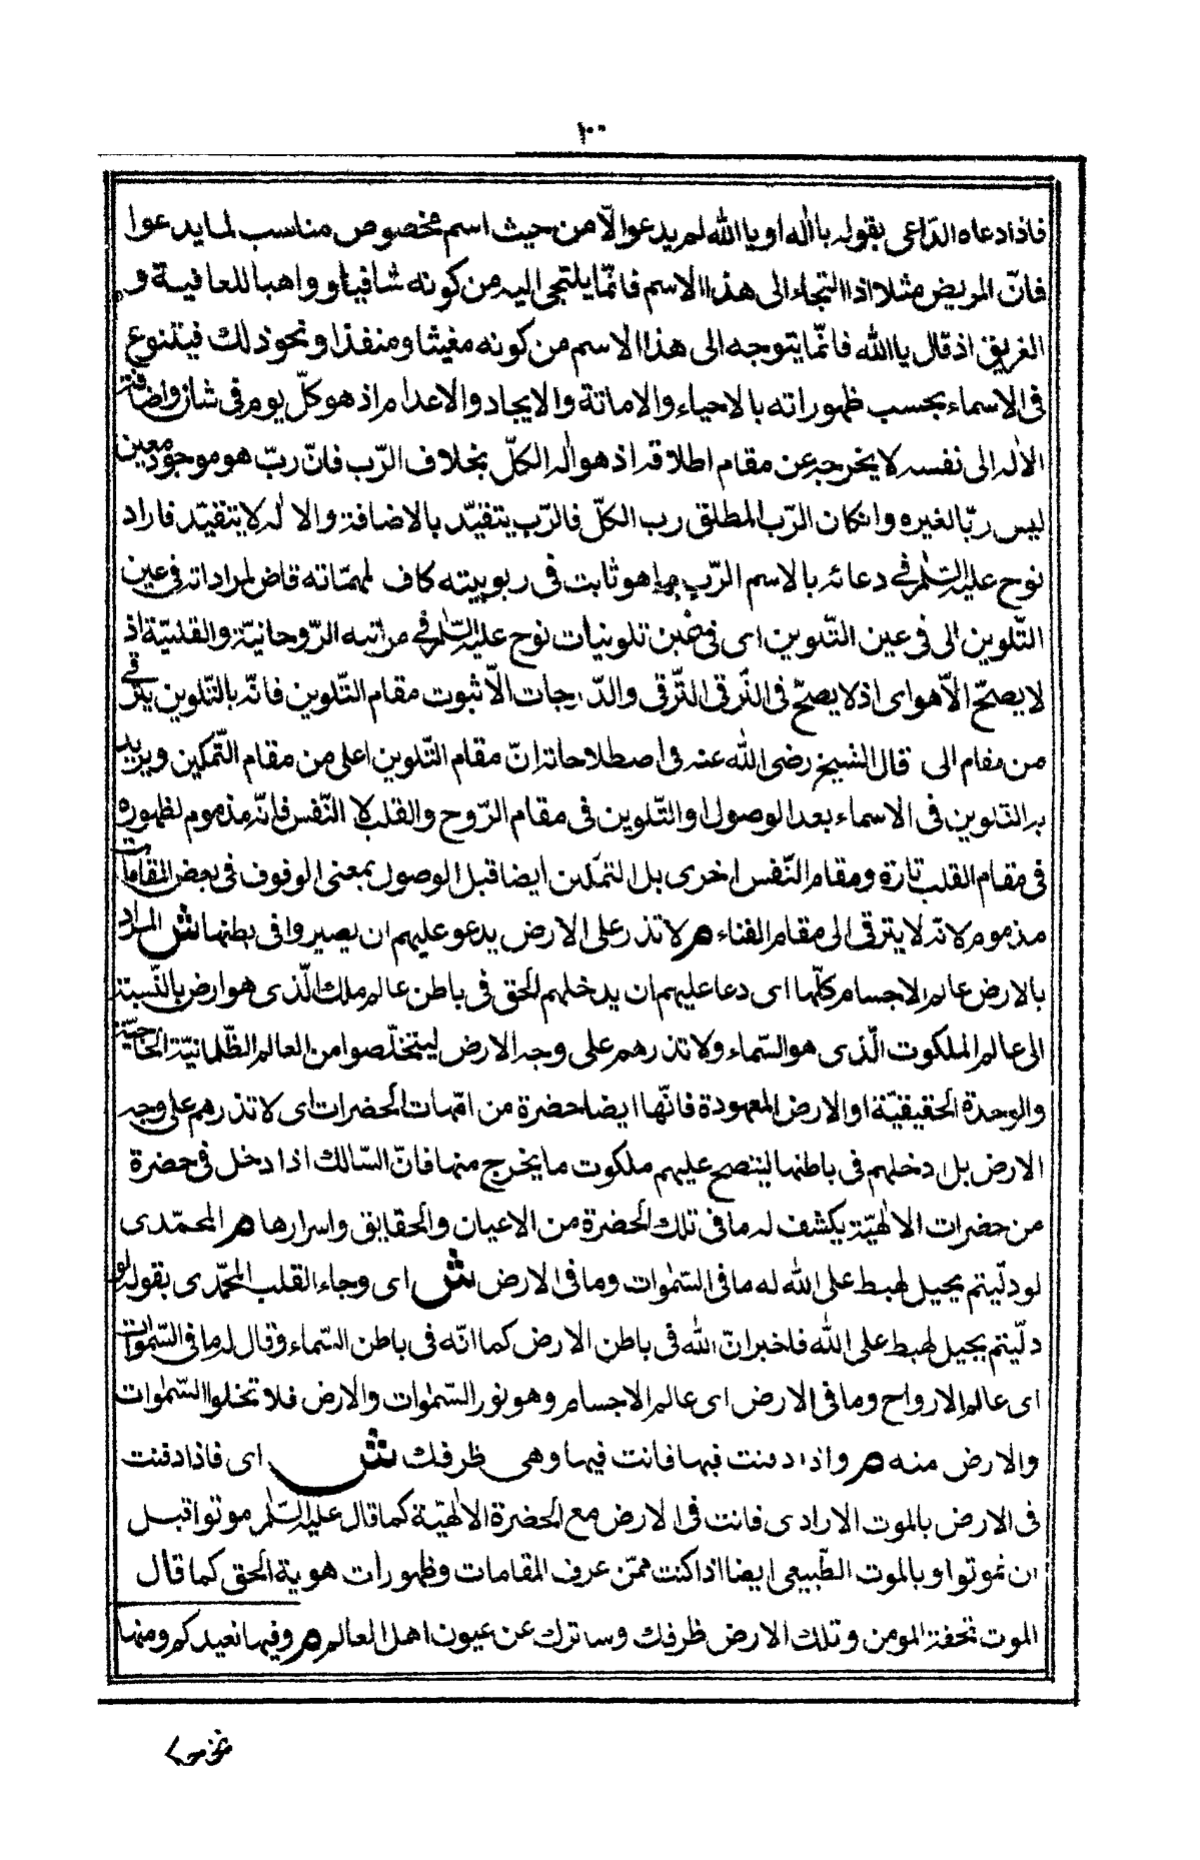 ١٠٠
فاذا دعاه الدّاعى بقوله يا اله او يا الله لم يدعوا لّا من حيث اسم مخصوص مناسب لما يدعوا
فانّ المريض مثلا اذا التجاء الى هذا الاسم فانّما يلتجى اليه من كونه شافيا و واهبا للعافية و
الغريق اذ قال يا الله فانّما يتوجه الى هذا الاسم من كونه مغيثا و منفذا و نحو ذلك فيتنوع
فى الاسماء بحسب ظهوراته بالاحياء والاماتة والايجاد والاعدام اذ هو كلّ يوم فى شان واضافة
الاله الى نفسه لا يخرجه عن مقام اطلاقه اذ هو اله الكلّ بخلاف الرّب فانّ ربّ هو موجود معين
ليس ربّا لغيره وانكان الرّب المطلق رب الكلّ فالرّب يتقيّد بالاضافة والا له لا يتقيّد فاراد
نوح عليه السّلم فى دعائه بالاسم الرّب ما هو ثابت فى ربوبيته كاف لمهمّاته قاض لمراداته فى عين
التّلوين الى فى عين التّلوين اى فى ضمن تلوينات نوح عليه السّلم فى مراتبه الرّوحانيّة والقلبيّة اذ
لا يصحّ الّا هو اى اذ لا يصحّ فى التّرقى التّرقى والدّرجات الّا ثبوت مقام التّلوين فانّه بالتّلوين يترقى
من مقام الى قال الشيخ رضى الله عنه فى اصطلاحاته انّ مقام التّلوين اعلى من مقام التّمكين ويريد
به التلوين فى الاسماء بعد الوصول او التّلوين فى مقام الرّوح والقلب لا النّفس فانّه مذموم لظهوره
فى مقام القلب تارة ومقام النّفس اخرى بل التمكين ايضا قبل الوصول بمعنى الوقوف فى بعض المقامات
مذموم لانّه لا يترقى الى مقام الفناء م لا تذر على الارض يدعو عليهم ان يصيروا فى بطنها ش المراد
بالارض عالم الاجسام كلّها اى دعا عليهم ان يدخلهم الحق فى باطن عالم ملك الّذى هو ارض بالنّسبة
الى عالم الملكوت الّذى هو السّماء ولا تذرهم على وجه الارض ليتخلّصوا من العالم الظّلمانيّة الحاجبة
والوحدة الحقيقيّة او الارض المعهودة فانّها ايضا حضرة من امّهات الحضرات اى لا تذرهم على وجه
الارض بل دخلهم فى باطنها ليتضح عليهم ملكوت ما يخرج منها فانّ السّالك اذا دخل فى حضرة
من حضرات الالٰهيّة يكشف له ما فى تلك الحضرة من الاعيان والحقايق واسرارها م المحمّدى
لو دلّيتم بحيل لهبط على الله له ما فى السّمٰوات وما فى الارض ش اى وجاء القلب المحمّدى بقوله لو
دلّيتم بحيل لهبط على الله فاخبر انّ الله فى باطن الارض كما انّه فى باطن السّماء وقال له ما فى السّمٰوات
اى عالم الارواح وما فى الارض اى عالم الاجسام وهو نور السّمٰوات والارض فلا تخلوا السّمٰوات
والارض منه م واذا دفنت فيها فانت فيها وهى ظرفك ش اى فاذا دفنت
فى الارض بالموت الارادى فانت فى الارض مع الحضرة الالٰهيّة كما قال عليه السّلم موتوا قبل
ان تموتوا وبالموت الطّبيعى ايضا اذا كنت ممّن عرف المقامات وظهورات هوية الحق كما قال
الموت تحفة المومن وتلك الارض ظرفك وساترك عن عيون اهل العالم م وفيها نعيدكم ومنها
نخرجكم